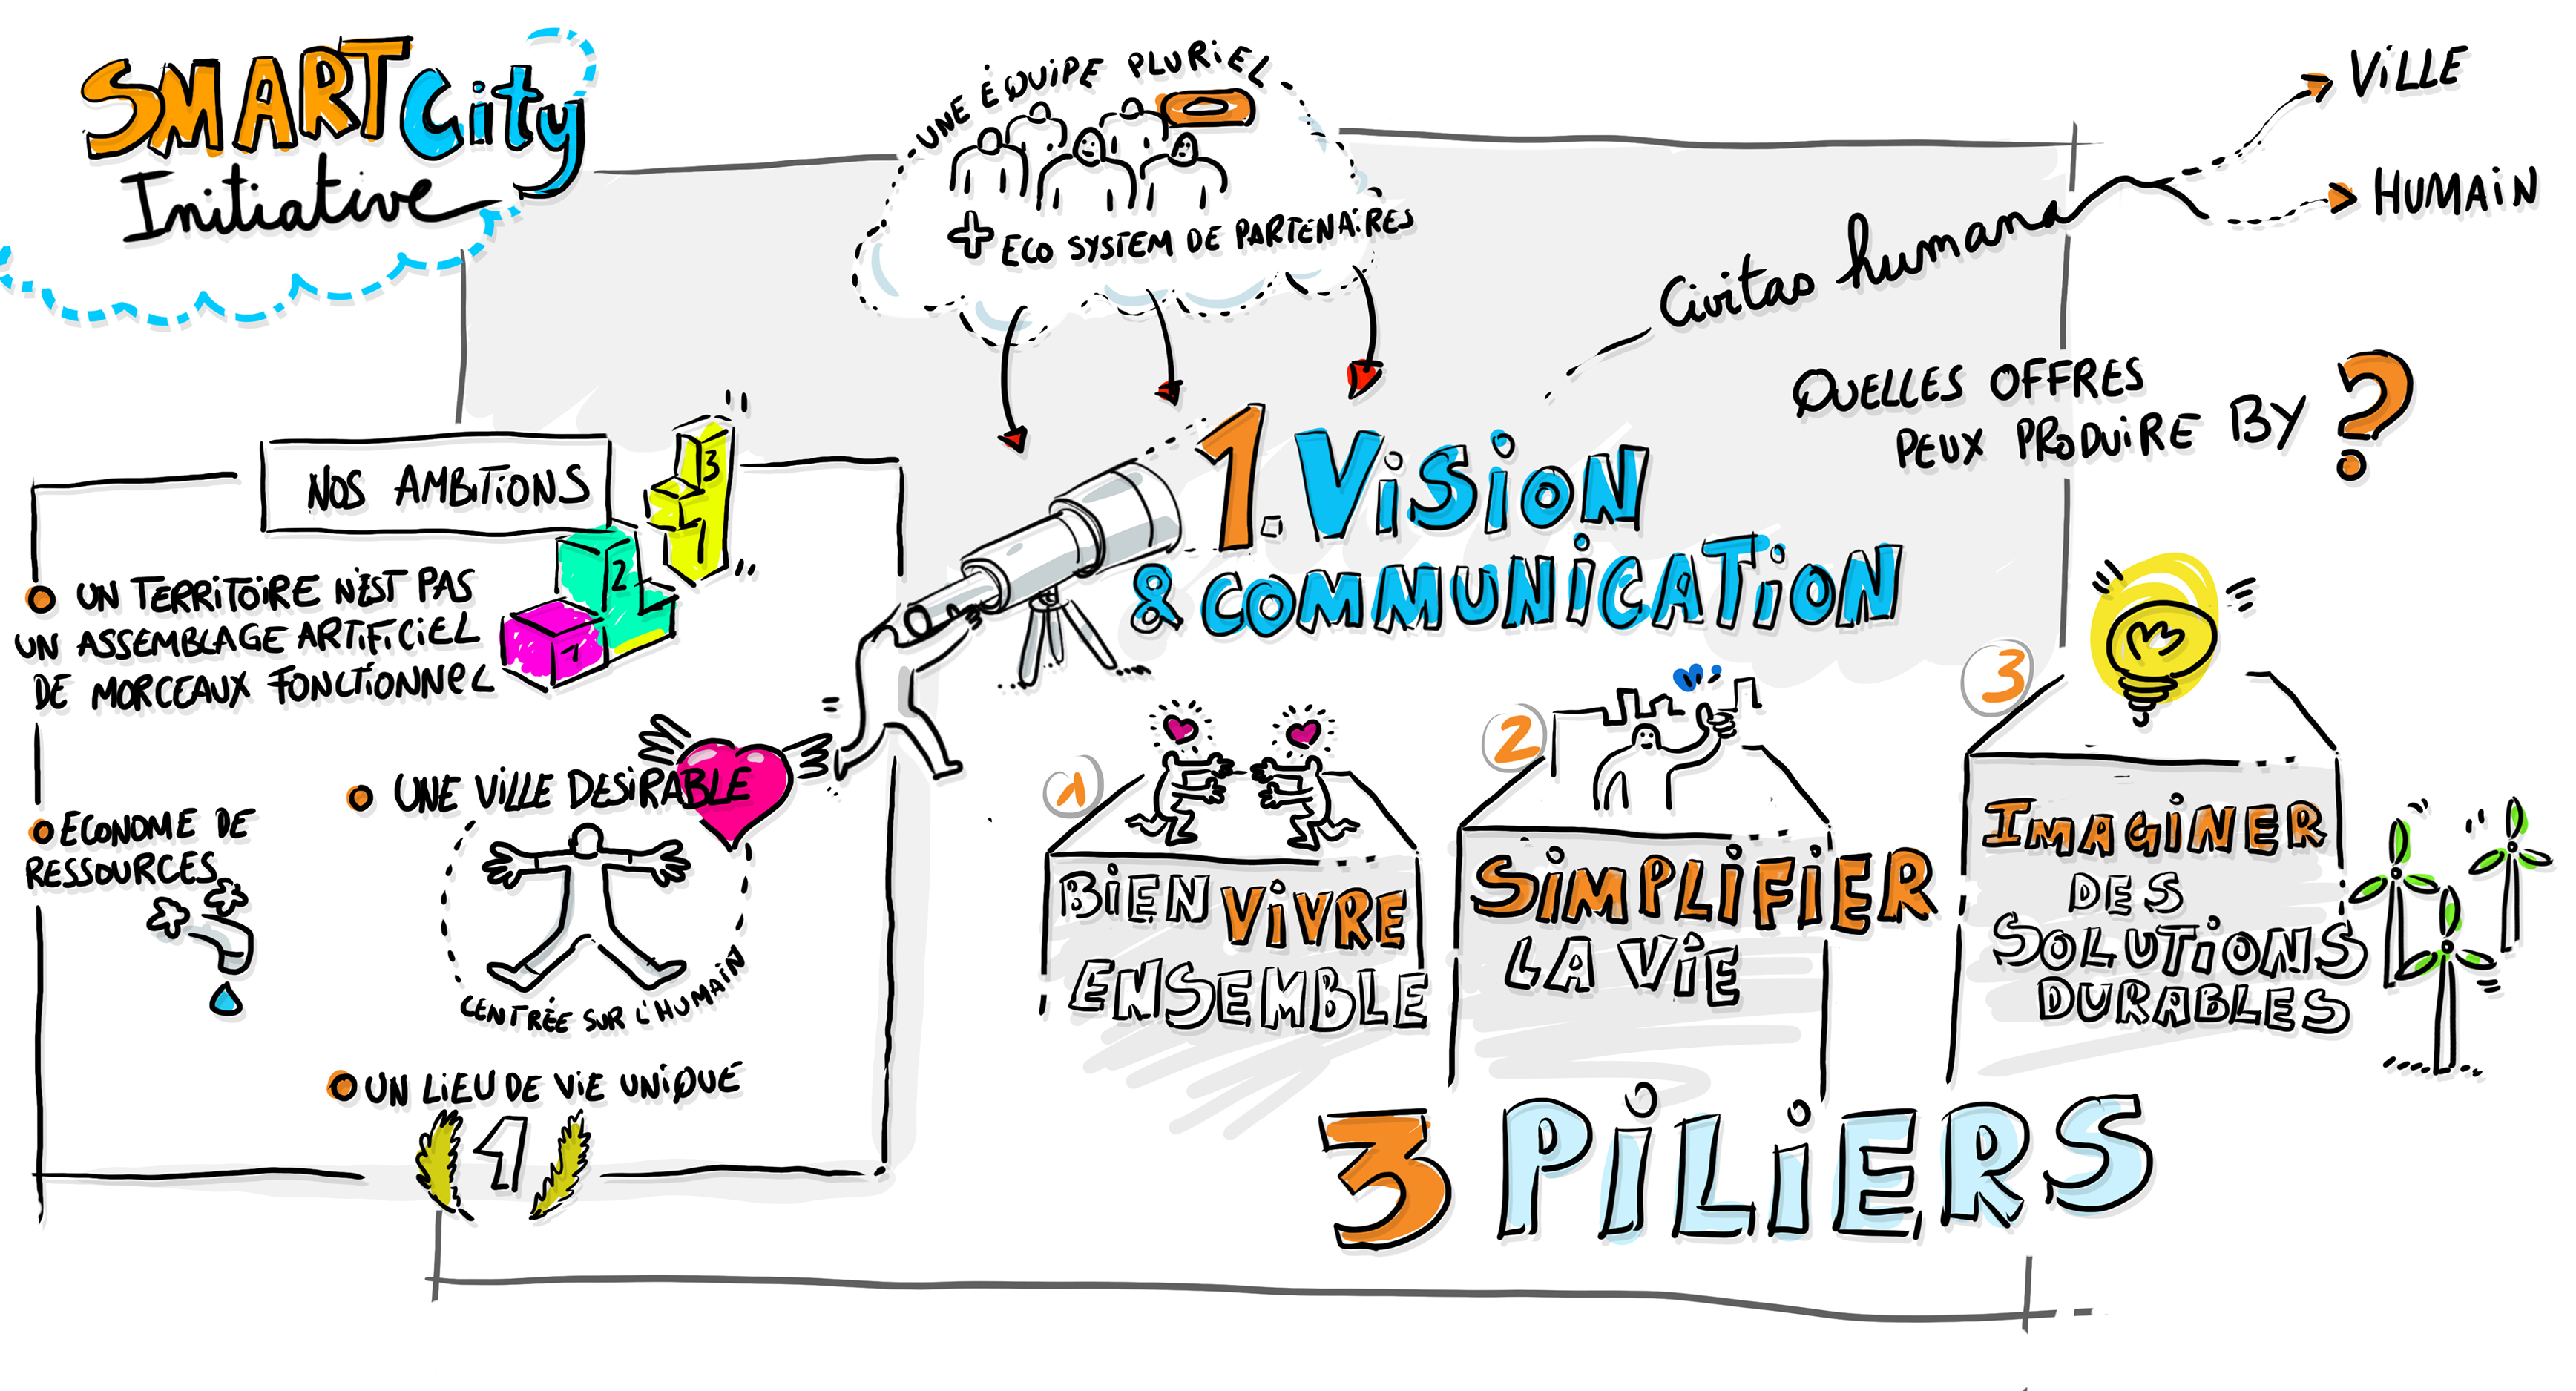 SMART City
Initiative
UNE ÉQUIPE PLURIEL
+ ECO SYSTEM DE PARTENAIRES
Civitas humana
VILLE
HUMAIN
QUELLES OFFRES
PEUX PRODUIRE BY ?
1. VISION
& COMMUNICATION
NOS AMBITIONS
1
2
3
UN TERRITOIRE N'EST PAS
UN ASSEMBLAGE ARTIFICIEL
DE MORCEAUX FONCTIONNEL
UNE VILLE DESIRABLE
CENTRÉE SUR L'HUMAIN
ECONOME DE
RESSOURCES
UN LIEU DE VIE UNIQUE
1
1
BIEN VIVRE
ENSEMBLE
2
SIMPLIFIER
LA VIE
3
IMAGINER
DES
SOLUTIONS
DURABLES
3 PILIERS